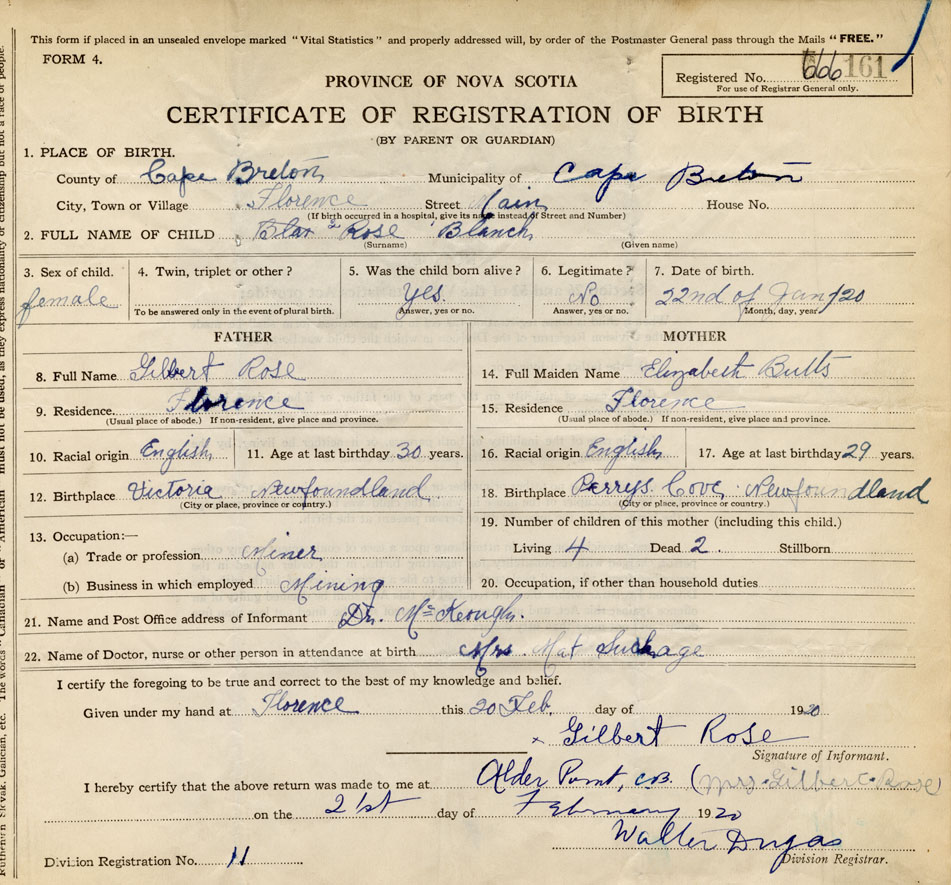 This form if placed in an unsealed envelope marked "Vital Statistics" and properly addressed will, by order of the Postmaster General pass through the Mails "FREE."
FORM 4.
PROVINCE OF NOVA SCOTIA
Registered No. 666 161
For use of Registrar General only.
CERTIFICATE OF REGISTRATION OF BIRTH
(BY PARENT OR GUARDIAN)
1. PLACE OF BIRTH.
County of Cape Breton Municipality of Cape Breton
City, Town or Village Florence Street Main House No.
(If birth occurred in a hospital, give its name instead of Street and Number)
2. FULL NAME OF CHILD Rose Blanch
(Surname) (Given name)
3. Sex of child. 4. Twin, triplet or other? 5. Was the child born alive? 6. Legitimate? 7. Date of birth.
female Yes. No 22nd of Jany 20
To be answered only in the event of plural birth. Answer, yes or no. Answer, yes or no. Month, day, year
FATHER MOTHER
8. Full Name Gilbert Rose 14. Full Maiden Name Elizabeth Butts
9. Residence. Florence 15. Residence Florence
(Usual place of abode.) If non-resident, give place and province. (Usual place of abode.) If non-resident, give place and province.
10. Racial origin English 11. Age at last birthday 30 years. 16. Racial origin English 17. Age at last birthday 29 years.
12. Birthplace Victoria Newfoundland 18. Birthplace Perrys Cove Newfoundland
(City or place, province or country.) (City or place, province or country.)
13. Occupation:— 19. Number of children of this mother (including this child.)
(a) Trade or profession Miner Living 4 Dead 2 Stillborn
(b) Business in which employed Mining 20. Occupation, if other than household duties
21. Name and Post Office address of Informant Dr. McKeough.
22. Name of Doctor, nurse or other person in attendance at birth Mrs Mat
I certify the foregoing to be true and correct to the best of my knowledge and belief.
Given under my hand at Florence this 20 Feb. day of 1920
x Gilbert Rose
Signature of Informant.
I hereby certify that the above return was made to me at Alder Point, C.B. (Mrs. Gilbert Rose)
on the 21st day of February 1920
Walter Dugas
Division Registrar.
Division Registration No. 11
Ruthenian, Slovak, Galician, etc. The words "Canadian" or "American" must not be used, as they express nationality or citizenship but not a race of people.